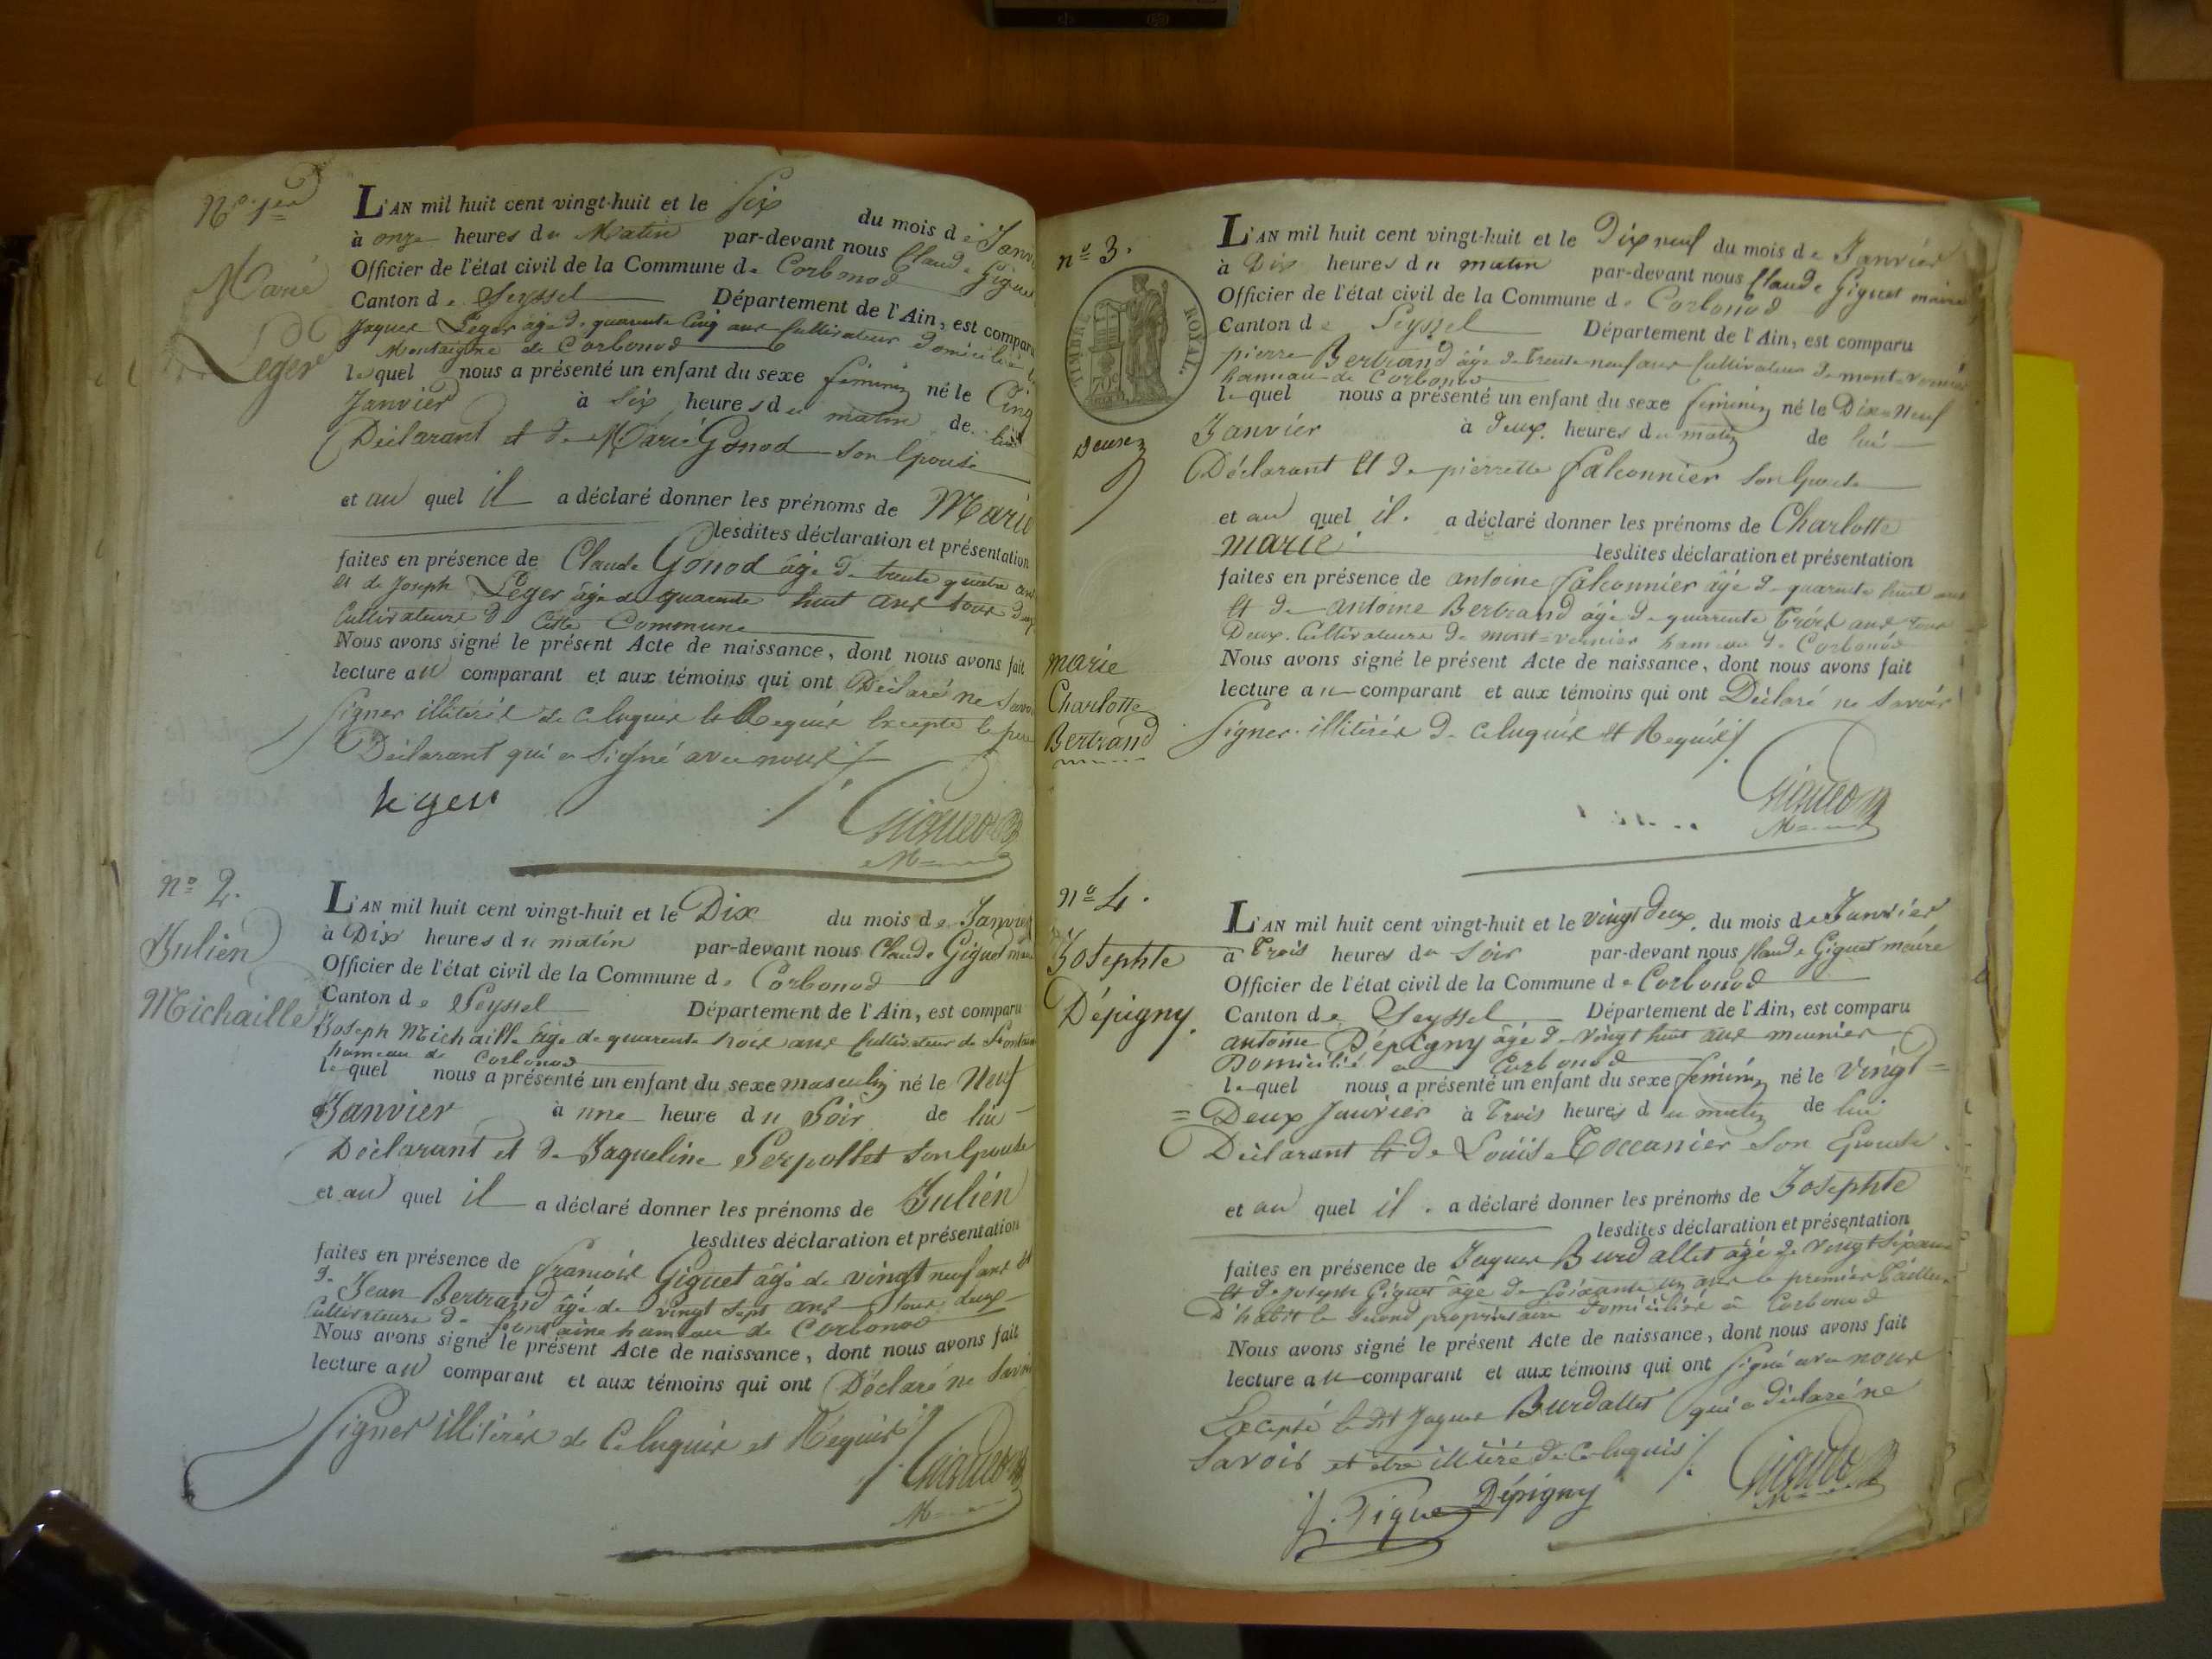 N° 1er
Marie
Leger
L'AN mil huit cent vingt-huit et le Six du mois de Janvi
à onze heures du Matin par-devant nous Claude Giguet
Officier de l'état civil de la Commune de Corbonod
Canton de Seyssel Département de l'Ain, est comparu
Jaques Leger âgé de quarente Cinq ans Cultivateur domicilié
Montaigne de Corbonod
lequel nous a présenté un enfant du sexe féminin né le Cinq
Janvier à Six heures du matin de lui
Déclarant et de Marie Gonod son Epouse
et au quel il a déclaré donner les prénoms de Marie
lesdites déclaration et présentation
faites en présence de Claude Gonod âgé de trente quatre ans
et de Joseph Leger âgé de quarente huit ans tous deux
Cultivateurs de Cette Commune
Nous avons signé le présent Acte de naissance, dont nous avons fait
lecture au comparant et aux témoins qui ont Déclaré ne Savoir
Signer illitérés de Ce Enquis et Requis Excepté le père
Déclarant qui a Signé avec nous
leger
Giguet
n° 2.
Julien
Michaille
L'AN mil huit cent vingt-huit et le Dix du mois de Janvier
à Dix heures du matin par-devant nous Claude Giguet maire
Officier de l'état civil de la Commune de Corbonod
Canton de Seyssel Département de l'Ain, est comparu
Joseph Michaille âgé de quarente trois ans Cultivateur de Fontaine
hameau de Corbonod
lequel nous a présenté un enfant du sexe masculin né le Neuf
Janvier à une heure du Soir de lui
Déclarant et de Jaqueline Serpollet son Epouse
et au quel il a déclaré donner les prénoms de Julien
lesdites déclaration et présentation
faites en présence de François Giguet âgé de vingt neuf ans et
de Jean Bertrand âgé de vingt sept ans tous deux
Cultivateurs de fontaine hameau de Corbonod
Nous avons signé le présent Acte de naissance, dont nous avons fait
lecture au comparant et aux témoins qui ont Déclaré ne Savoir
Signer illitérés de Ce Enquis et Réquis
Giguet
n° 3.
TIMBRE ROYAL
marie
Charlotte
Bertrand
L'AN mil huit cent vingt-huit et le Dix neuf du mois de Janvier
à Dix heures du matin par-devant nous Claude Giguet maire
Officier de l'état civil de la Commune de Corbonod
Canton de Seyssel Département de l'Ain, est comparu
pierre Bertrand âgé de Trente neuf ans Cultivateur de mont-Vernier
hameau de Corbonod
lequel nous a présenté un enfant du sexe féminin né le Dix=Neuf
Janvier à Deux heures du matin de lui
Déclarant Et de pierrette falconnier son Epouse
et au quel il. a déclaré donner les prénoms de Charlotte
marie lesdites déclaration et présentation
faites en présence de antoine falconnier âgé de quarente huit ans
Et de antoine Bertrand âgé de quarente Trois ans tous
Deux Cultivateurs de mont=vernier hameau de Corbonod
Nous avons signé le présent Acte de naissance, dont nous avons fait
lecture au comparant et aux témoins qui ont Déclaré ne Savoir
Signer illitérés de Ce Enquis Et Requis
Giguet
n° 4.
Josephte
Dépigny.
L'AN mil huit cent vingt-huit et le vingt Deux du mois de Janvier
à Trois heures du Soir par-devant nous Claude Giguet maire
Officier de l'état civil de la Commune de Corbonod
Canton de Seyssel Département de l'Ain, est comparu
antoine Dépigny âgé de vingt huit ans meunier
Domicilié à Corbonod
lequel nous a présenté un enfant du sexe féminin né le Vingt=
=Deux Janvier à Trois heures du matin de lui
Déclarant Et de Louïse Toccanier Son Epouse
et au quel il. a déclaré donner les prénoms de Josephte
lesdites déclaration et présentation
faites en présence de Jaques Burdallet âgé de Vingt
Et de Joseph Giguet âgé de Soixante un ans le premier Tailleur
D'habit le Second propriétaire domiciliés à Corbonod
Nous avons signé le présent Acte de naissance, dont nous avons fait
lecture au comparant et aux témoins qui ont Signé avec nous
Excepté le dit Jaques Burdallet qui a déclaré ne
Savoir et être illitéré de Ce Enquis
J. Figue Dépigny
Giguet